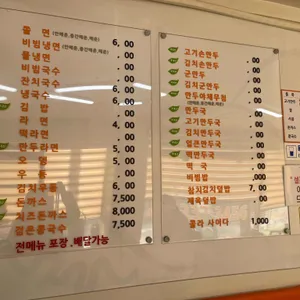 쫄 면 (전매콤,중간매콤,매콤) 6, 00
비빔냉면 (전매콤,중간매콤,매콤) 6, 00
물냉면 , 00
비빔국수 , 00
잔치국수 6, 00
냉국수 6, 00
김 밥 , 00
라 면 , 00
떡라면 , 00
만두라면 , 00
오 뎅 , 00
우 동 , 00
김치우동 6, 00
돈까스 7,500
치즈돈까스 8,000
검은콩국수 7,500
전메뉴 포장 .배달가능
고기손만두 , 00
김치손만두 , 00
군만두 , 00
김치군만두 , 00
만두국 , 00
고기만두국 , 00
김치만두국 , 00
얼큰만두국 , 00
떡만두국 , 00
떡 국 , 00
비빔밥 ,000
참치김치덮밥 7, 00
제육덮밥 , 00
콜라 사이다 1,000